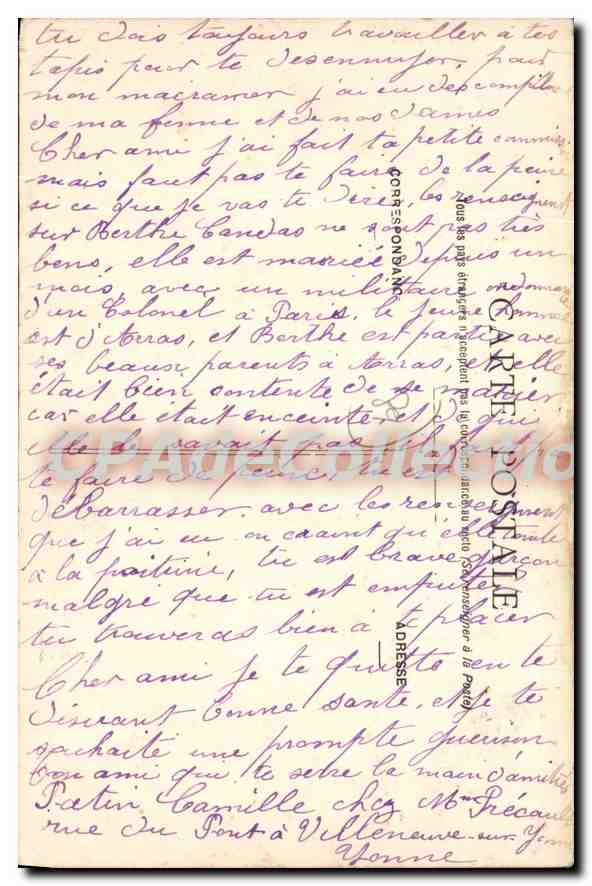 tu dois toujours travailler à tes
tapis pour te desennuyer, pour
mon macramer j'ai eu des compli
de ma femme et de nos dames
Cher ami j'ai fait ta petite commiss
mais faut pas te faire de la peine
si ce que je vas te dire, les renseignent
sur Berthe Candas ne sont pas très
bons, elle est mariée depuis un
mois, avec un militaire ordonnance
d'un Colonel à Paris, le jeune homme
est d'Arras, et Berthe est partie avec
ses beaux parents à Arras, et elle
était bien contente de se marier
car elle était enceinte et de qui
elle le savait pas
te faire de peine
débarrasser avec les renseignement
que j'ai eu on craint qu'elle
à la poitrine, tu est brave garçon
malgré que tu est emputé
tu trouveras bien à te placer
Cher ami je te quitte en te
disant bonne santé, et je te
souhaite une prompte guerison
ton ami qui te serre la main d'amitiés
Patin Camille chez Mme Précault
rue du Pont à Villeneuve-sur-Yonne
Yonne
CARTE POSTALE
Tous les pays étrangers n'acceptent pas la correspondance au recto (Se renseigner à la Poste)
CORRESPONDANC
ADRESSE
CPAdeCollection